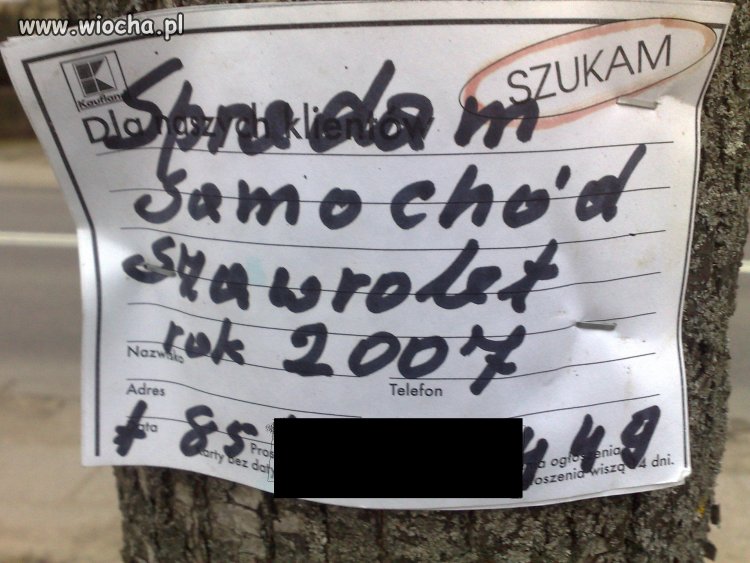 www.wiocha.pl
Kaufland
SZUKAM
Dla naszych klientów
Spradam
samochód
szawrolet
rok 2007
Nazwisko
Adres
Telefon
Data
t 85
449
Pros
karty bez daty
ogłoszenia
oszenia wiszą 14 dni.